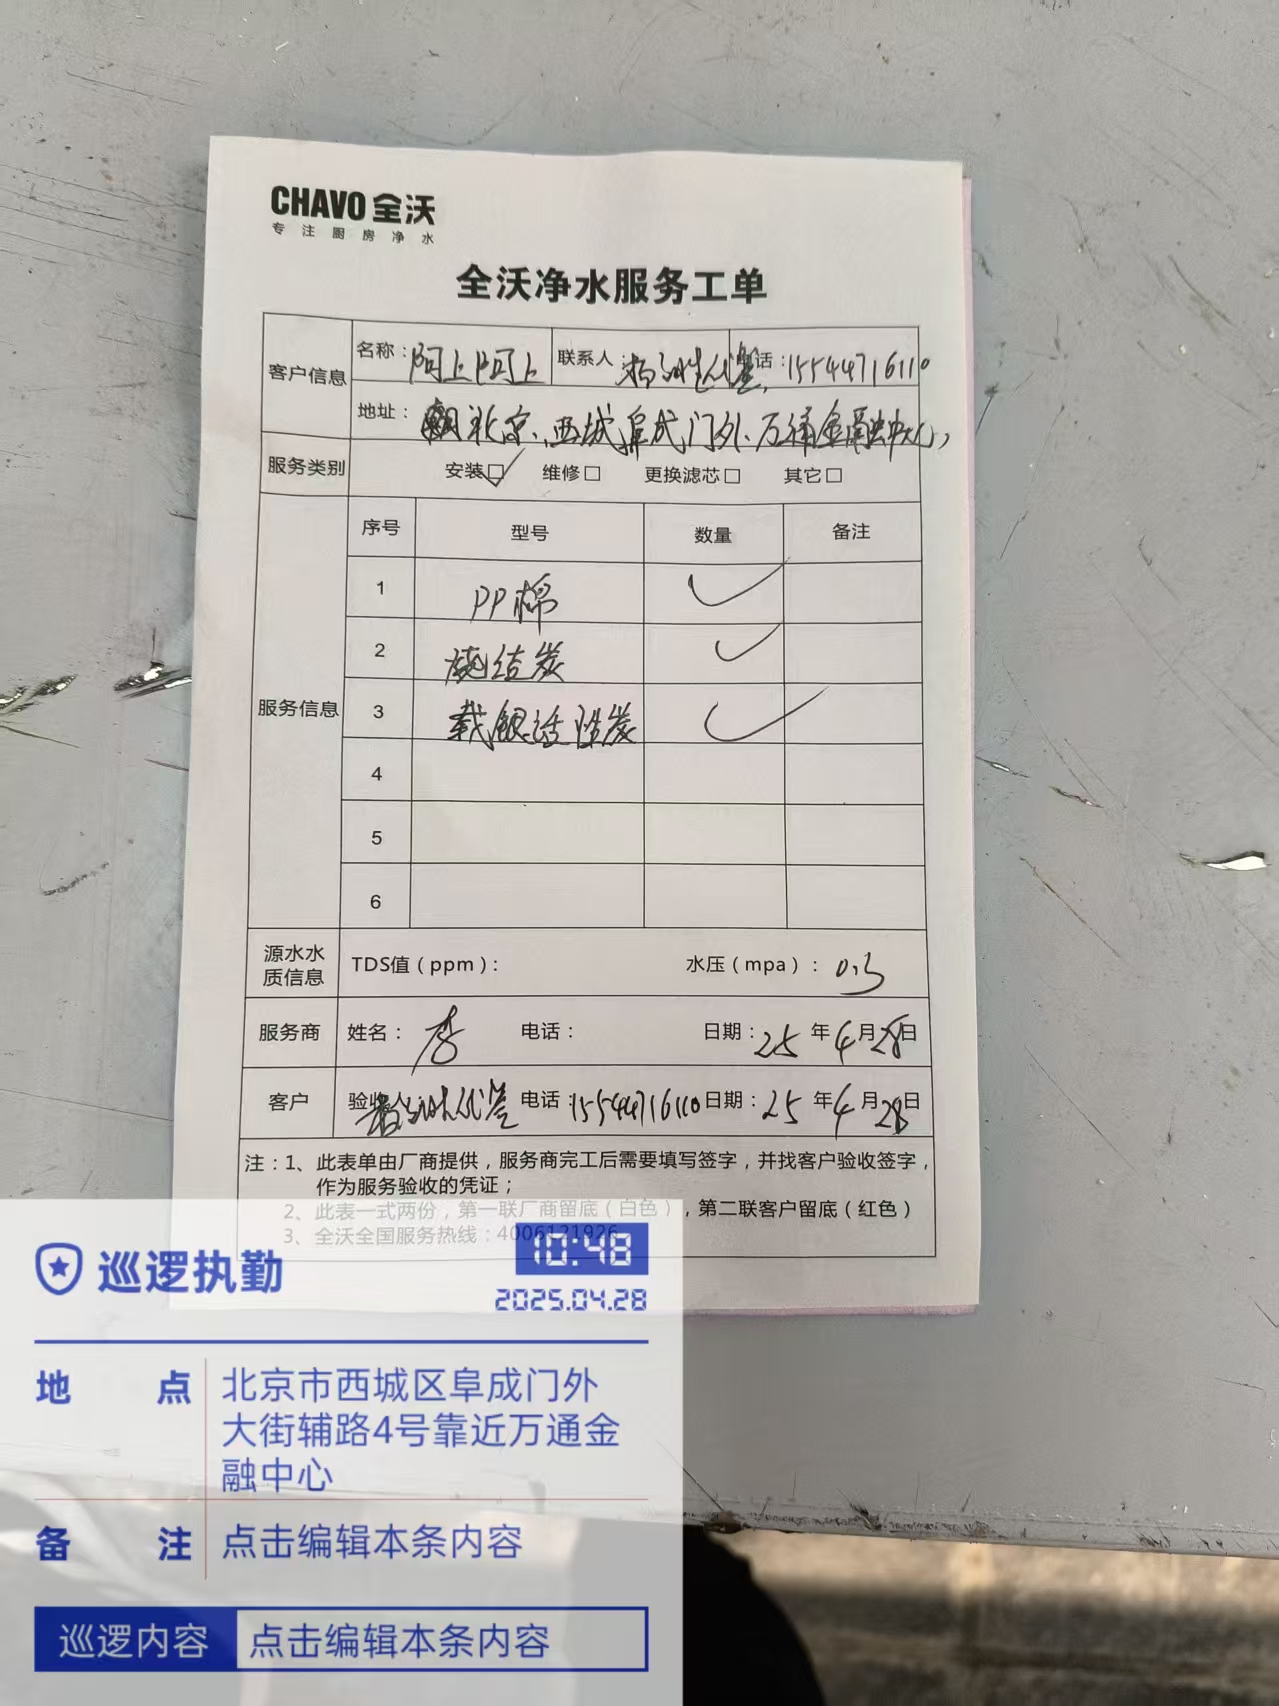 CHAVO 全沃
专注厨房净水
全沃净水服务工单
客户信息 名称：阿上阿上 联系人： 话：15544716110
地址：北京、西城阜成门外、万通金融中心，
服务类别 安装☑ 维修□ 更换滤芯□ 其它□
服务信息 序号 型号 数量 备注
1 PP棉 ✓
2 烧结炭 ✓
3 载银活性炭 ✓
4
5
6
源水水质信息 TDS值（ppm）： 水压（mpa）：0.3
服务商 姓名：李 电话： 日期：25年4月28日
客户 验收人 电话：15544716110 日期：25年4月28日
注：1、此表单由厂商提供，服务商完工后需要填写签字，并找客户验收签字，
作为服务验收的凭证；
2、此表一式两份，第一联厂商留底（白色），第二联客户留底（红色）
3、全沃全国服务热线：4006121926
巡逻执勤
10:48
2025.04.28
地点 北京市西城区阜成门外
大街辅路4号靠近万通金
融中心
备注 点击编辑本条内容
巡逻内容 点击编辑本条内容